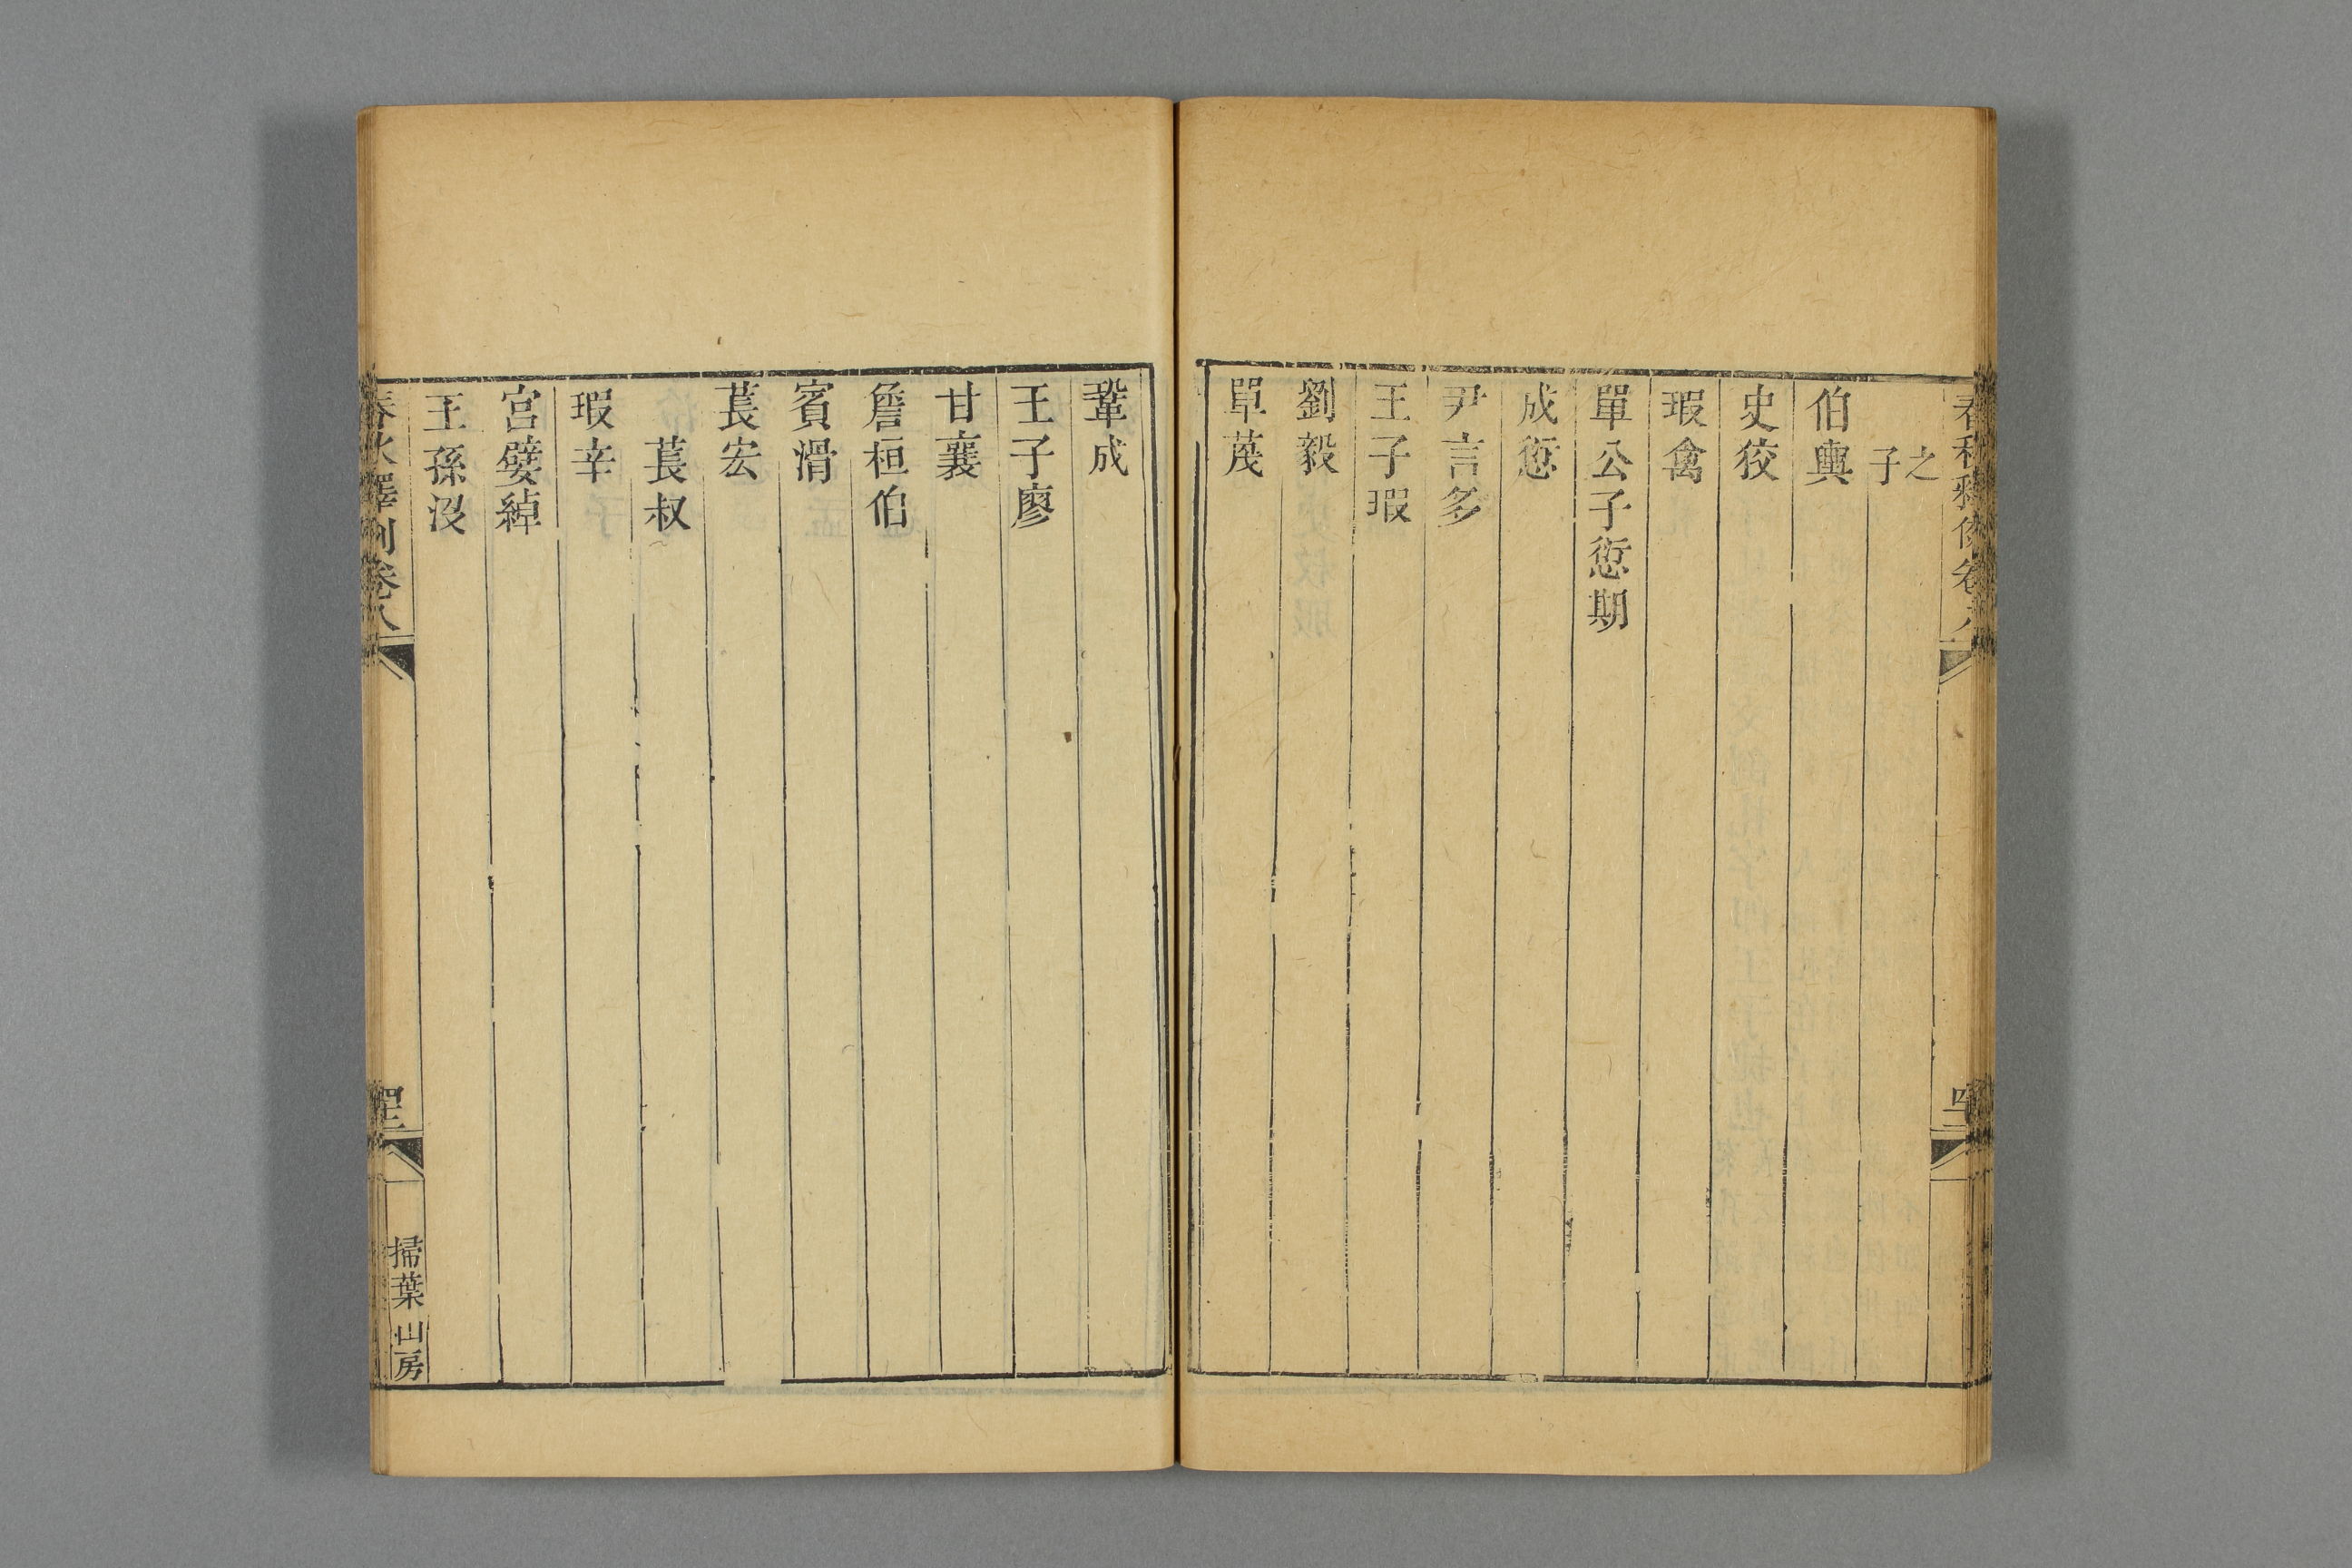 之
子
伯輿
史狡
瑕禽
單公子愆期
成愆
尹言多
王子瑕
劉毅
單蔑
鞏成
王子廖
甘襄
詹桓伯
賓滑
萇宏
萇叔
瑕辛
宮嬖綽
王孫沒
春秋釋例卷八
掃葉山房